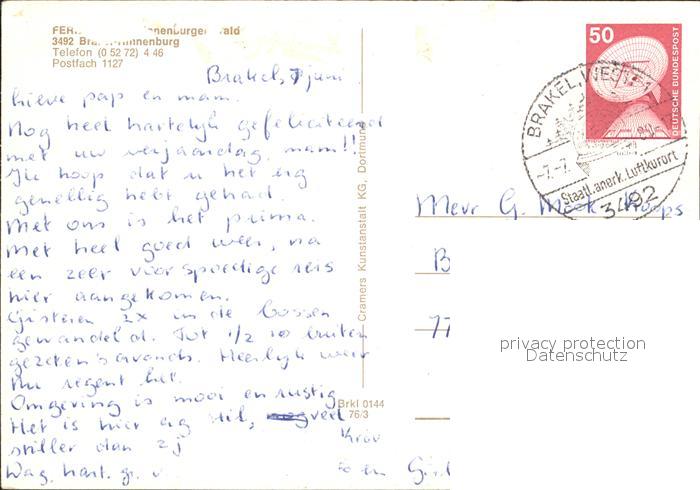 FER nnenburger ald
3492 Bra -Hinnenburg
Telefon (0 52 72) 4 46
Postfach 1127
Brakel, 7 juni
Lieve pap en mam.
Nog heel hartelijk gefeliciteerd
met uw verjaardag, mam!!
Ik hoop dat u het erg
gezellig hebt gehad.
Met ons is het prima.
Met heel goed weer, na
een zeer voorspoedige reis
hier aangekomen.
Gisteren 2x in de bossen
gewandeld. Tot 1/2 10 buiten
gezeten 's avonds. Heerlijk weer
nu regent het.
Omgeving is mooi en rustig
Het is hier erg stil, veel
stiller dan
hart. gr.
en
Cramers Kunstanstalt KG, Dortmund
Brkl 0144
76/3
50
DEUTSCHE BUNDESPOST
BRAKEL, WESTF 1
-7.-7.
Staatl. anerk. Luftkurort
3492
Mevr G. Mook Koops
B
77
privacy protection
Datenschutz